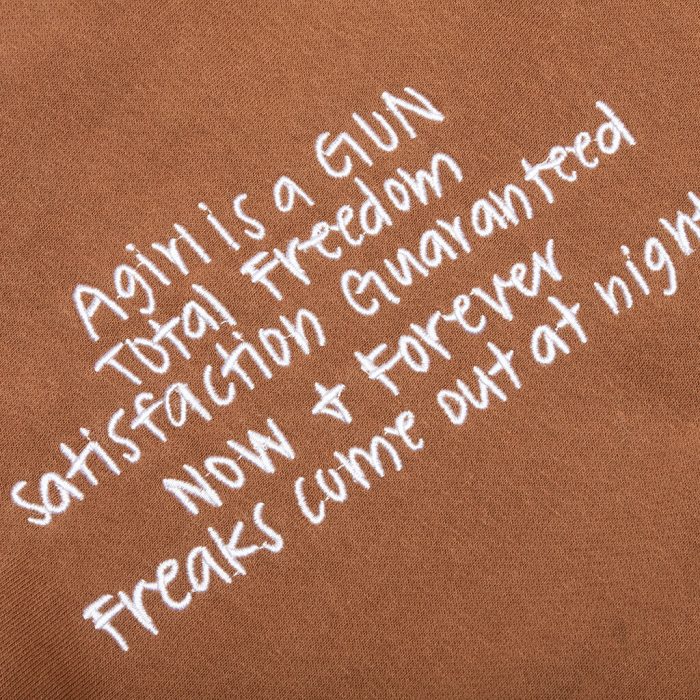 A girl is a GUN
Total Freedom
Satisfaction Guaranteed
Now & Forever
Freaks come out at night